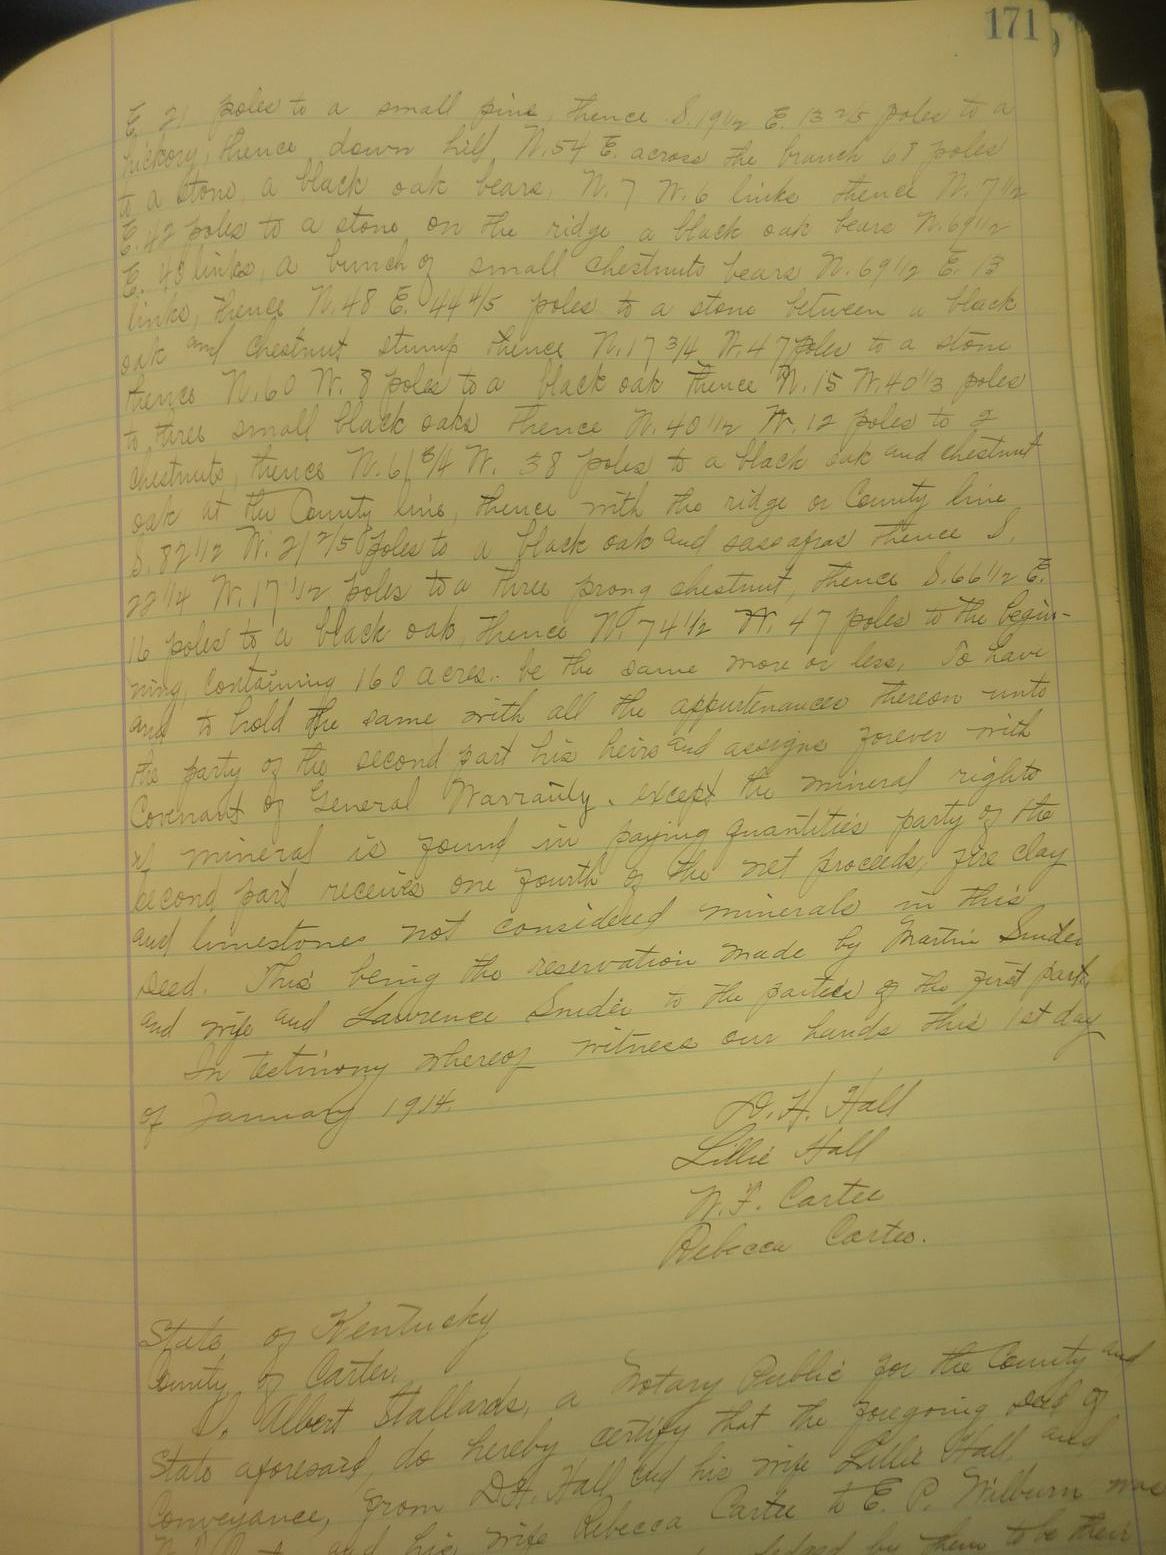 171
E. 21 poles to a small pine, thence S. 19 1/2 E. 13 2/5 poles to a
hickory, thence down hill N. 54 E. across the branch 68 poles
to a stone, a black oak bears, N. 7 W. 6 links thence N. 7 1/2
E. 42 poles to a stone on the ridge a black oak bears N. 69 1/2
E. 40 links, a bunch of small chestnuts bears N. 69 1/2 E. 13
links, thence N. 48 E. 44 4/5 poles to a stone between a black
oak and chestnut stump thence N. 17 3/4 W. 47 poles to a stone
thence N. 60 W. 8 poles to a black oak thence N. 15 W. 40 1/3 poles
to three small black oaks thence N. 40 1/2 W. 12 poles to 2
chestnuts, thence N. 61 3/4 W. 38 poles to a black oak and chestnut
oak at the County line, thence with the ridge or County line
S. 82 1/2 W. 21 2/5 poles to a black oak and sassafras thence S.
22 1/4 W. 17 1/2 poles to a three prong chestnut, thence S. 66 1/2 E.
16 poles to a black oak, thence N. 74 1/2 W. 47 poles to the begin-
ning, Containing 160 acres. be the same more or less, To have
and to hold the same with all the appurtenances thereon unto
the party of the second part his heirs and assigns forever with
Covenant of General Warranty. except the mineral rights
if mineral is found in paying quantities party of the
second part receives one fourth of the net proceeds, fire clay
and limestones not considered minerals in this
Deed. This being the reservation made by Martin Snider
and wife and Lawrence Snider to the parties of the first part,
In testimony whereof witness our hands this 1st day
of January 1914.
D. H. Hall
Lillie Hall
W. F. Cartee
Rebecca Cartee.
State of Kentucky
County of Carter.
I, Albert Stallards, a Notary Public for the County and
State aforesaid, do hereby certify that the foregoing deed of
Conveyance, from D.H. Hall and his wife Lillie Hall, and
and his wife Rebecca Cartee to E. P. Wilburn was
by them to be their